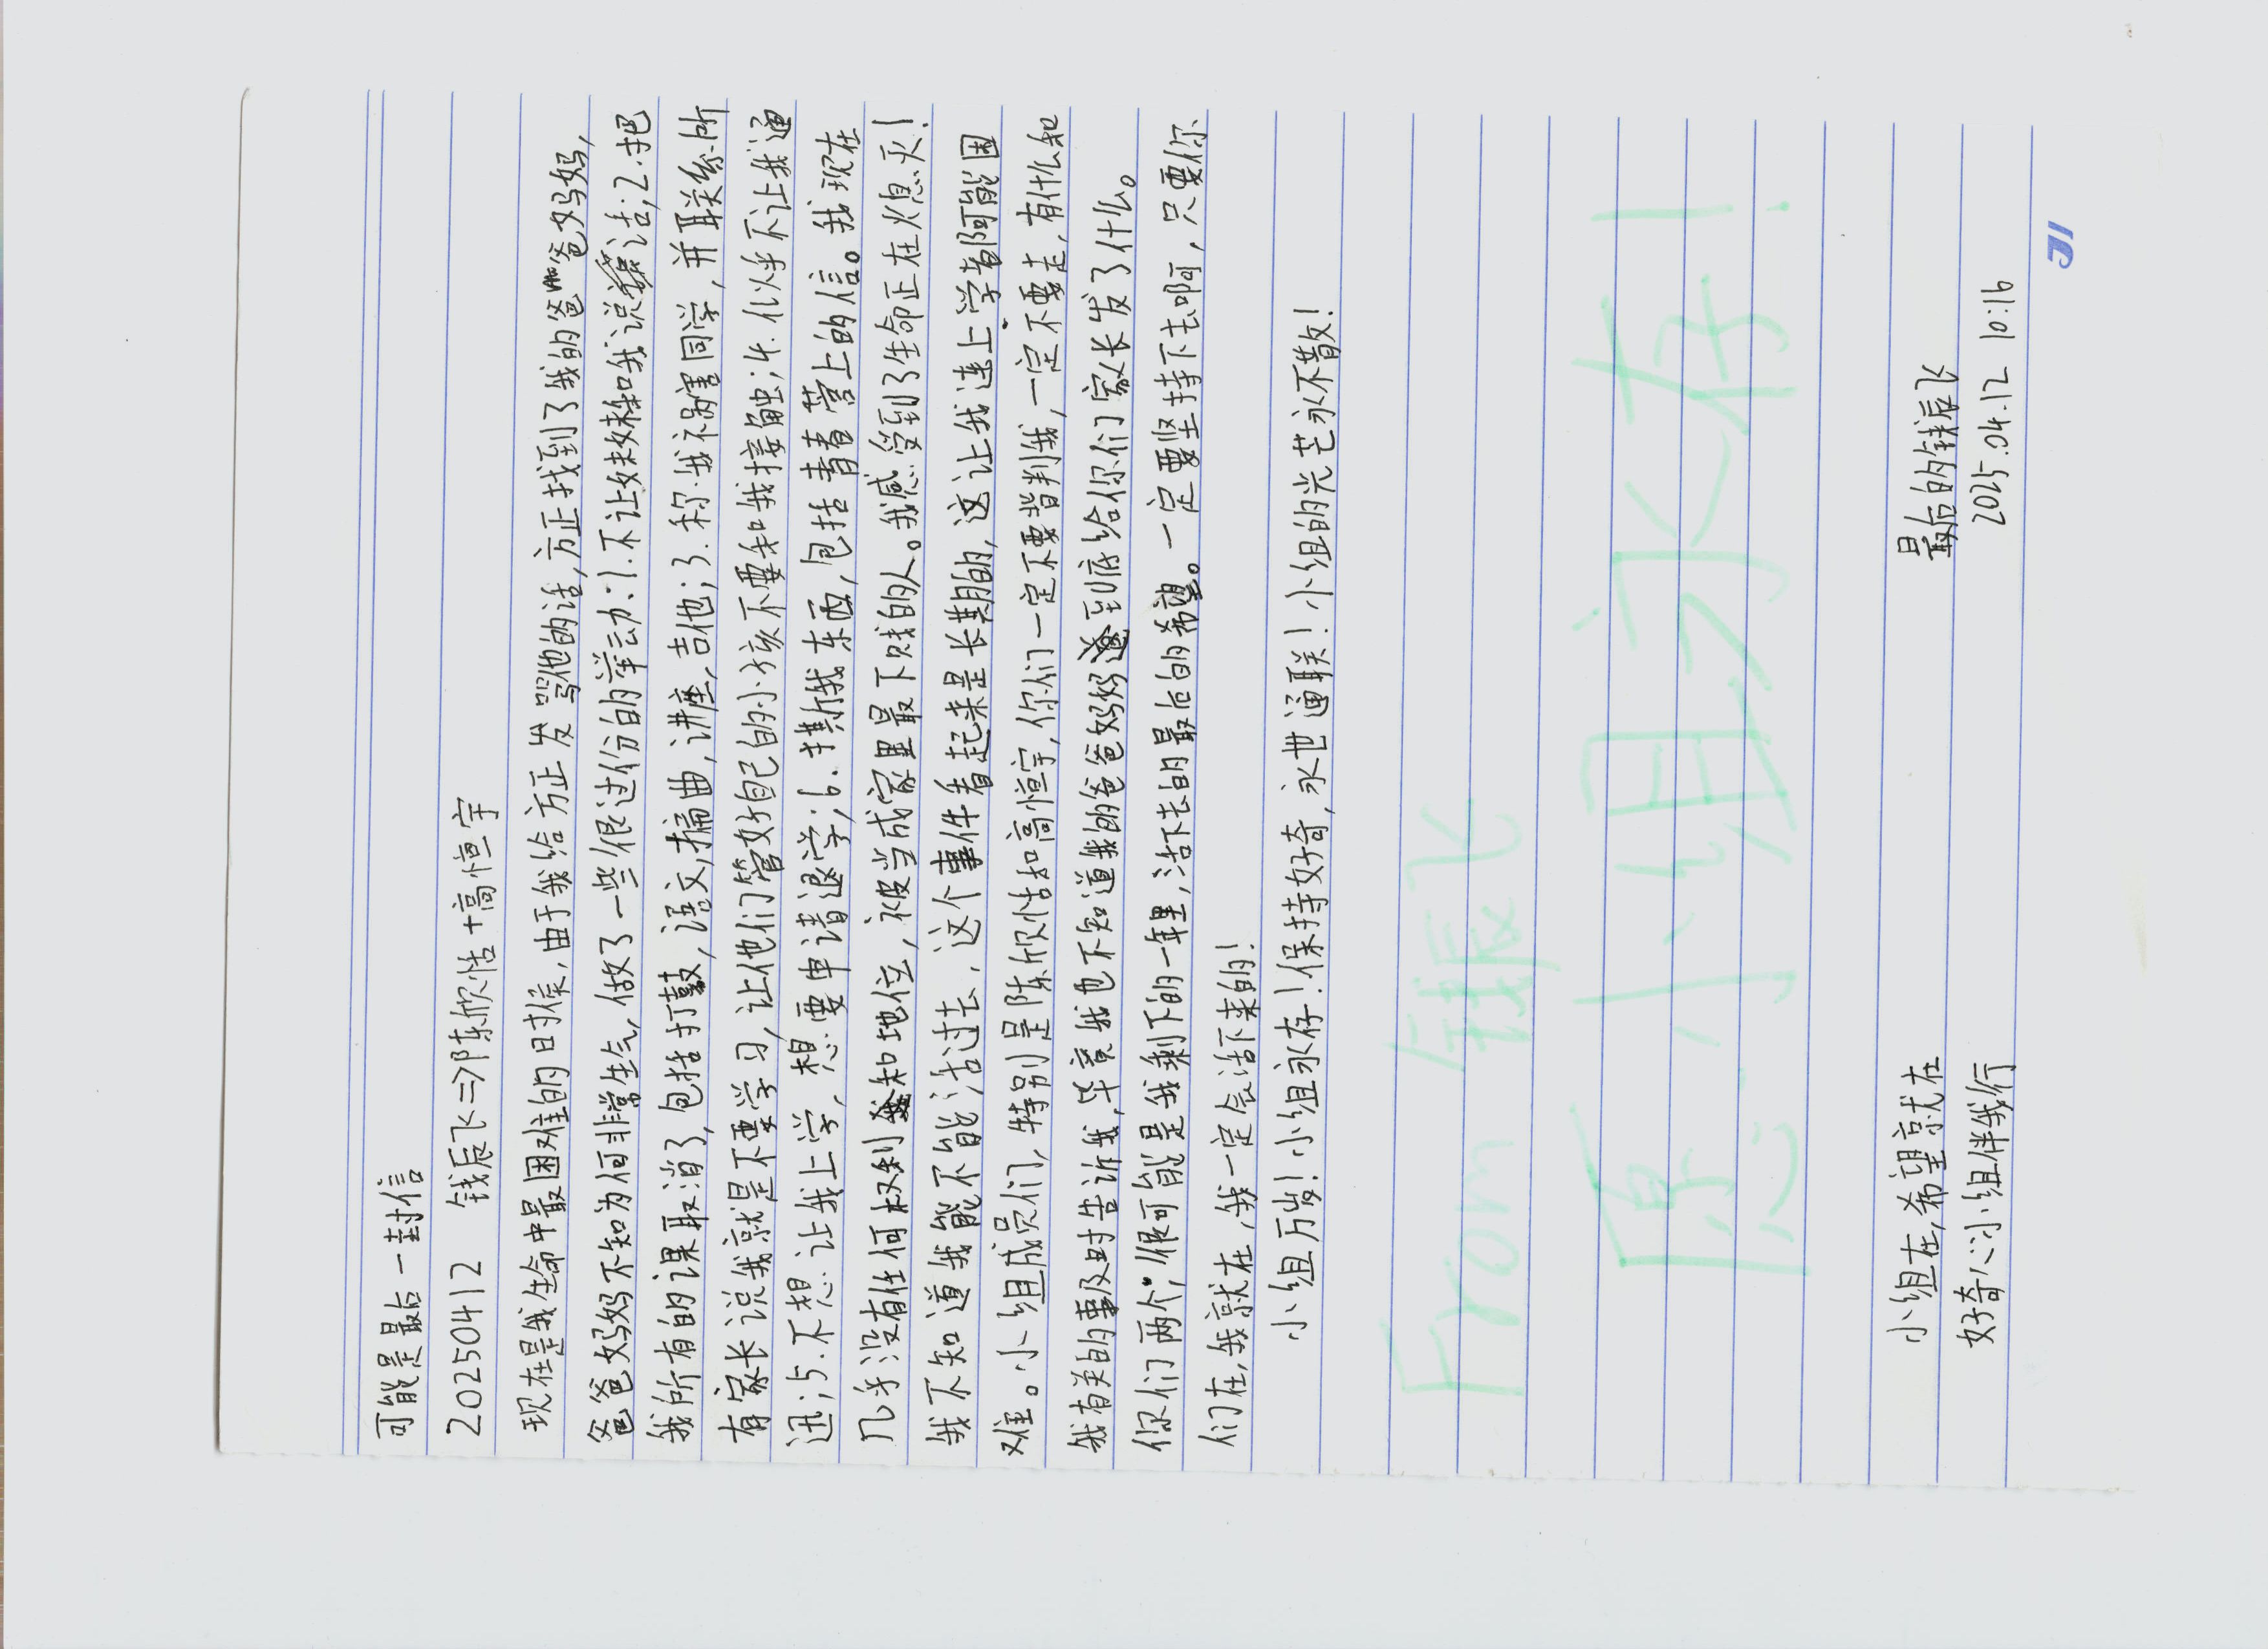 可能是最后一封信
20250412 钱辰飞⇒陈欣恬+高恒宇
现在是我生命中最困难的日时候,由于我给方正发骂他的话,方正找到了我的爸爸妈妈,
爸爸妈妈不知为何非常生气,做了一些很过份的举动:1.不让妹妹和我说话;2.把
我所有的课取消了,包括打鼓,语文,编曲,讲座,吉他;3.称我祸害同学,并联系所
有家长说我就是不要学习,让他们管好自己的小孩不要和我接触;4.似乎不让我通
迅;5.不想让我上学,想要申请退学;6.撕我东西,包括青春营上的信。我现在
几乎没有任何权利和地位,被当成家里最下贱的人。我感受到了生命正在火息灭!
我不知道我能不能活过去,这个事件看起来是长期的,这让我连上学都可能困
难。小组成员们,特别是陈欣恬和高恒宇,你们一定不要背判我,一定不要走,有什么和
我有关的事及时告诉我,毕竟我也不知道我的爸爸妈妈到底给你们家长发了什么。
你们两个,很可能是我剩下的一年里,活下去的最后的希望。一定要坚持下去啊,只要你
们在,我就在,我一定会活下来的!
小组万岁!小组永存!保持好奇,永世通联!小组的光芒永不散!
From 钱辰飞
愿小组永存!
小组在,希望就在 最后的钱辰飞
好奇心小组伴我行 2025.04.12 10:16
JI